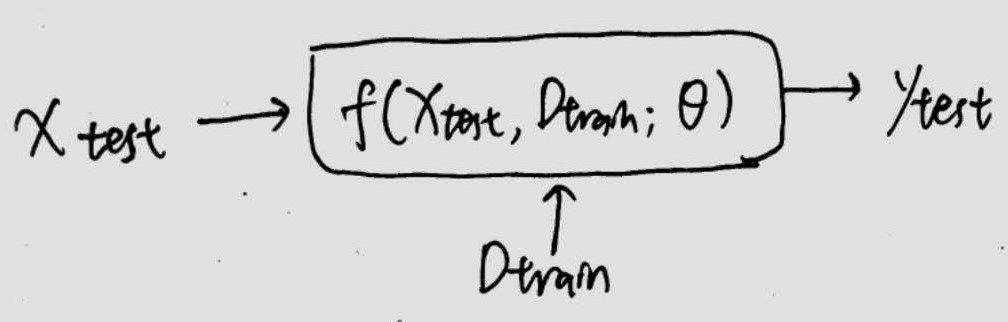 X test → f(Xtest, Dtrain; θ) → ytest
↑
Dtrain